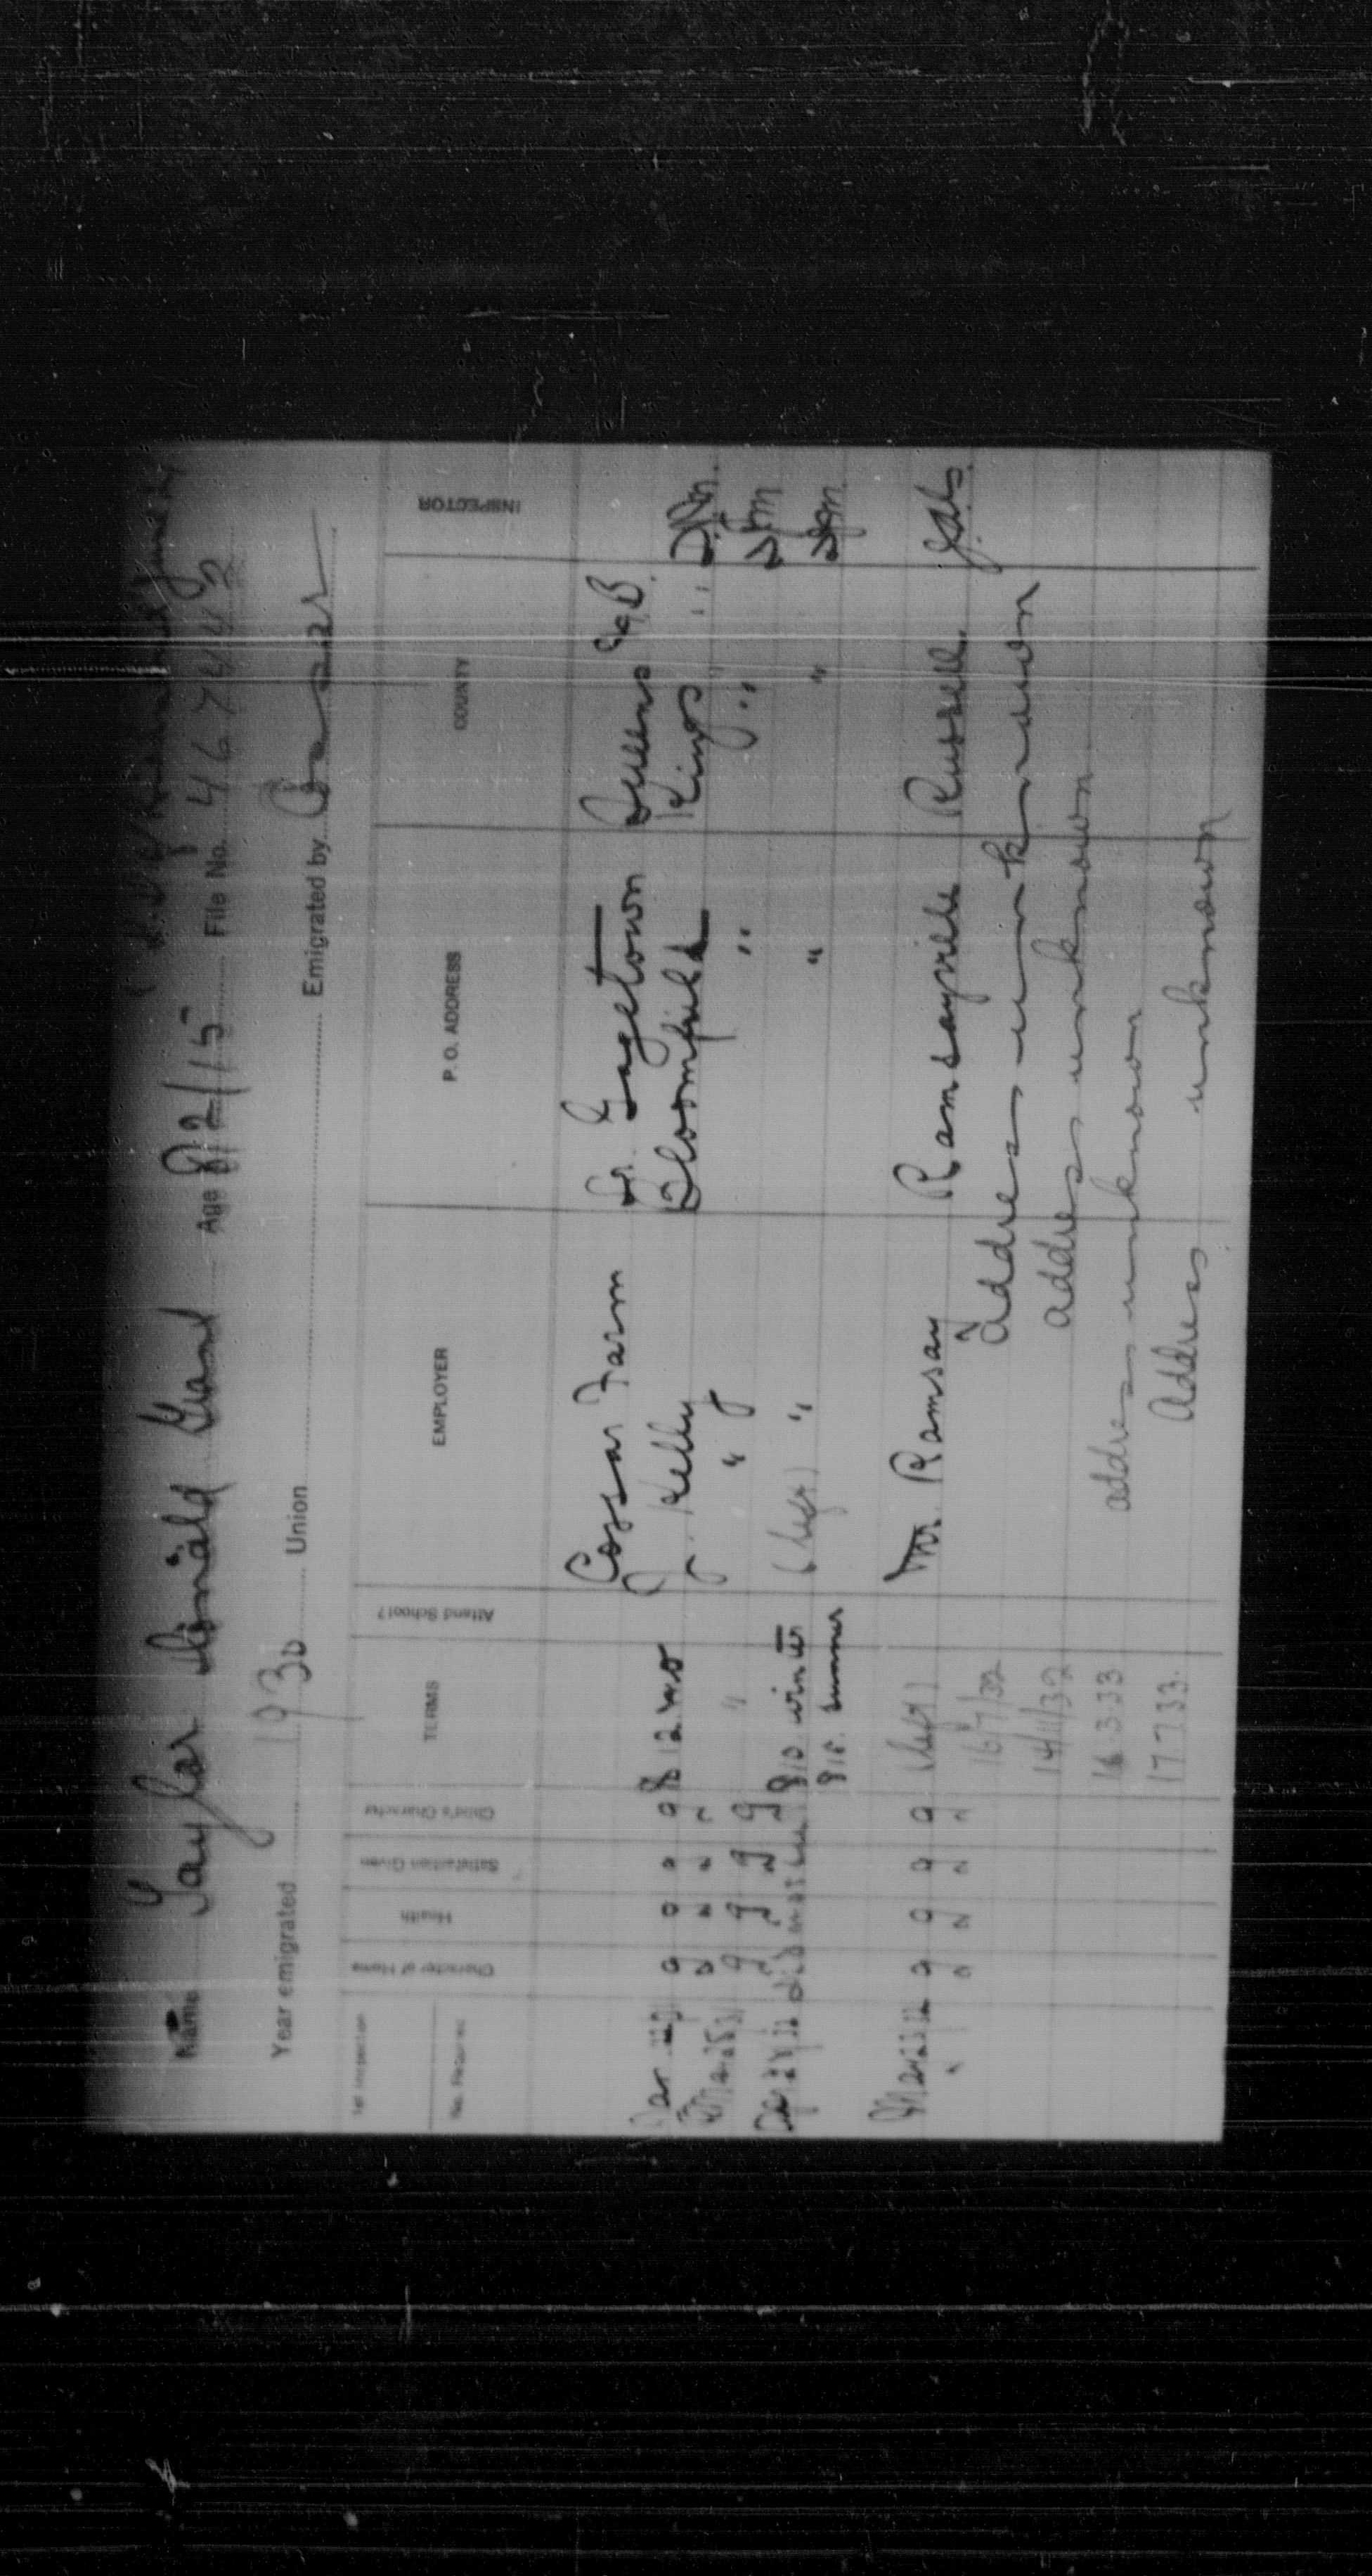 Name Taylor Donald Grant Age 8/2/15 File No. 467442
Year emigrated 1930 Union Emigrated by Cossar
1st Inspection
No. Required
Character of Home
Health
Satisfaction Given
Child's Character
TERMS
Attend School?
EMPLOYER
P. O. ADDRESS
COUNTY
INSPECTOR
Cossar Farm Lr. Gagetown Queens N.B.
g g g g $12 mo J. Kelly Bloomfield Kings "
g g g g " " " "
$10. winter (left) " " "
$15. summer
g g g g (left) Mr. Ramsay Ramsayville Russell
16/7/32 Address unknown
14/11/32 address unknown
16.3.33 address unknown
17.7.33. Address unknown